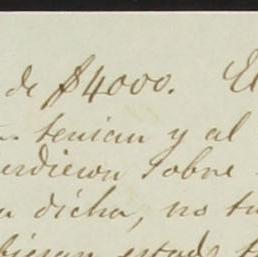 de $4000. El
tenian y al
urdieron sobre
dicha, no tu
bieran estado t